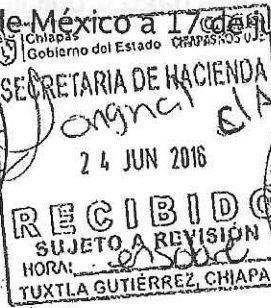 de México a 17 de
Chiapas
Gobierno del Estado CHIAPAS NOS UNE
SECRETARIA DE HACIENDA
Original
24 JUN 2016
RECIBIDO
SUJETO A REVISIÓN
HORA:
TUXTLA GUTIÉRREZ, CHIAPA